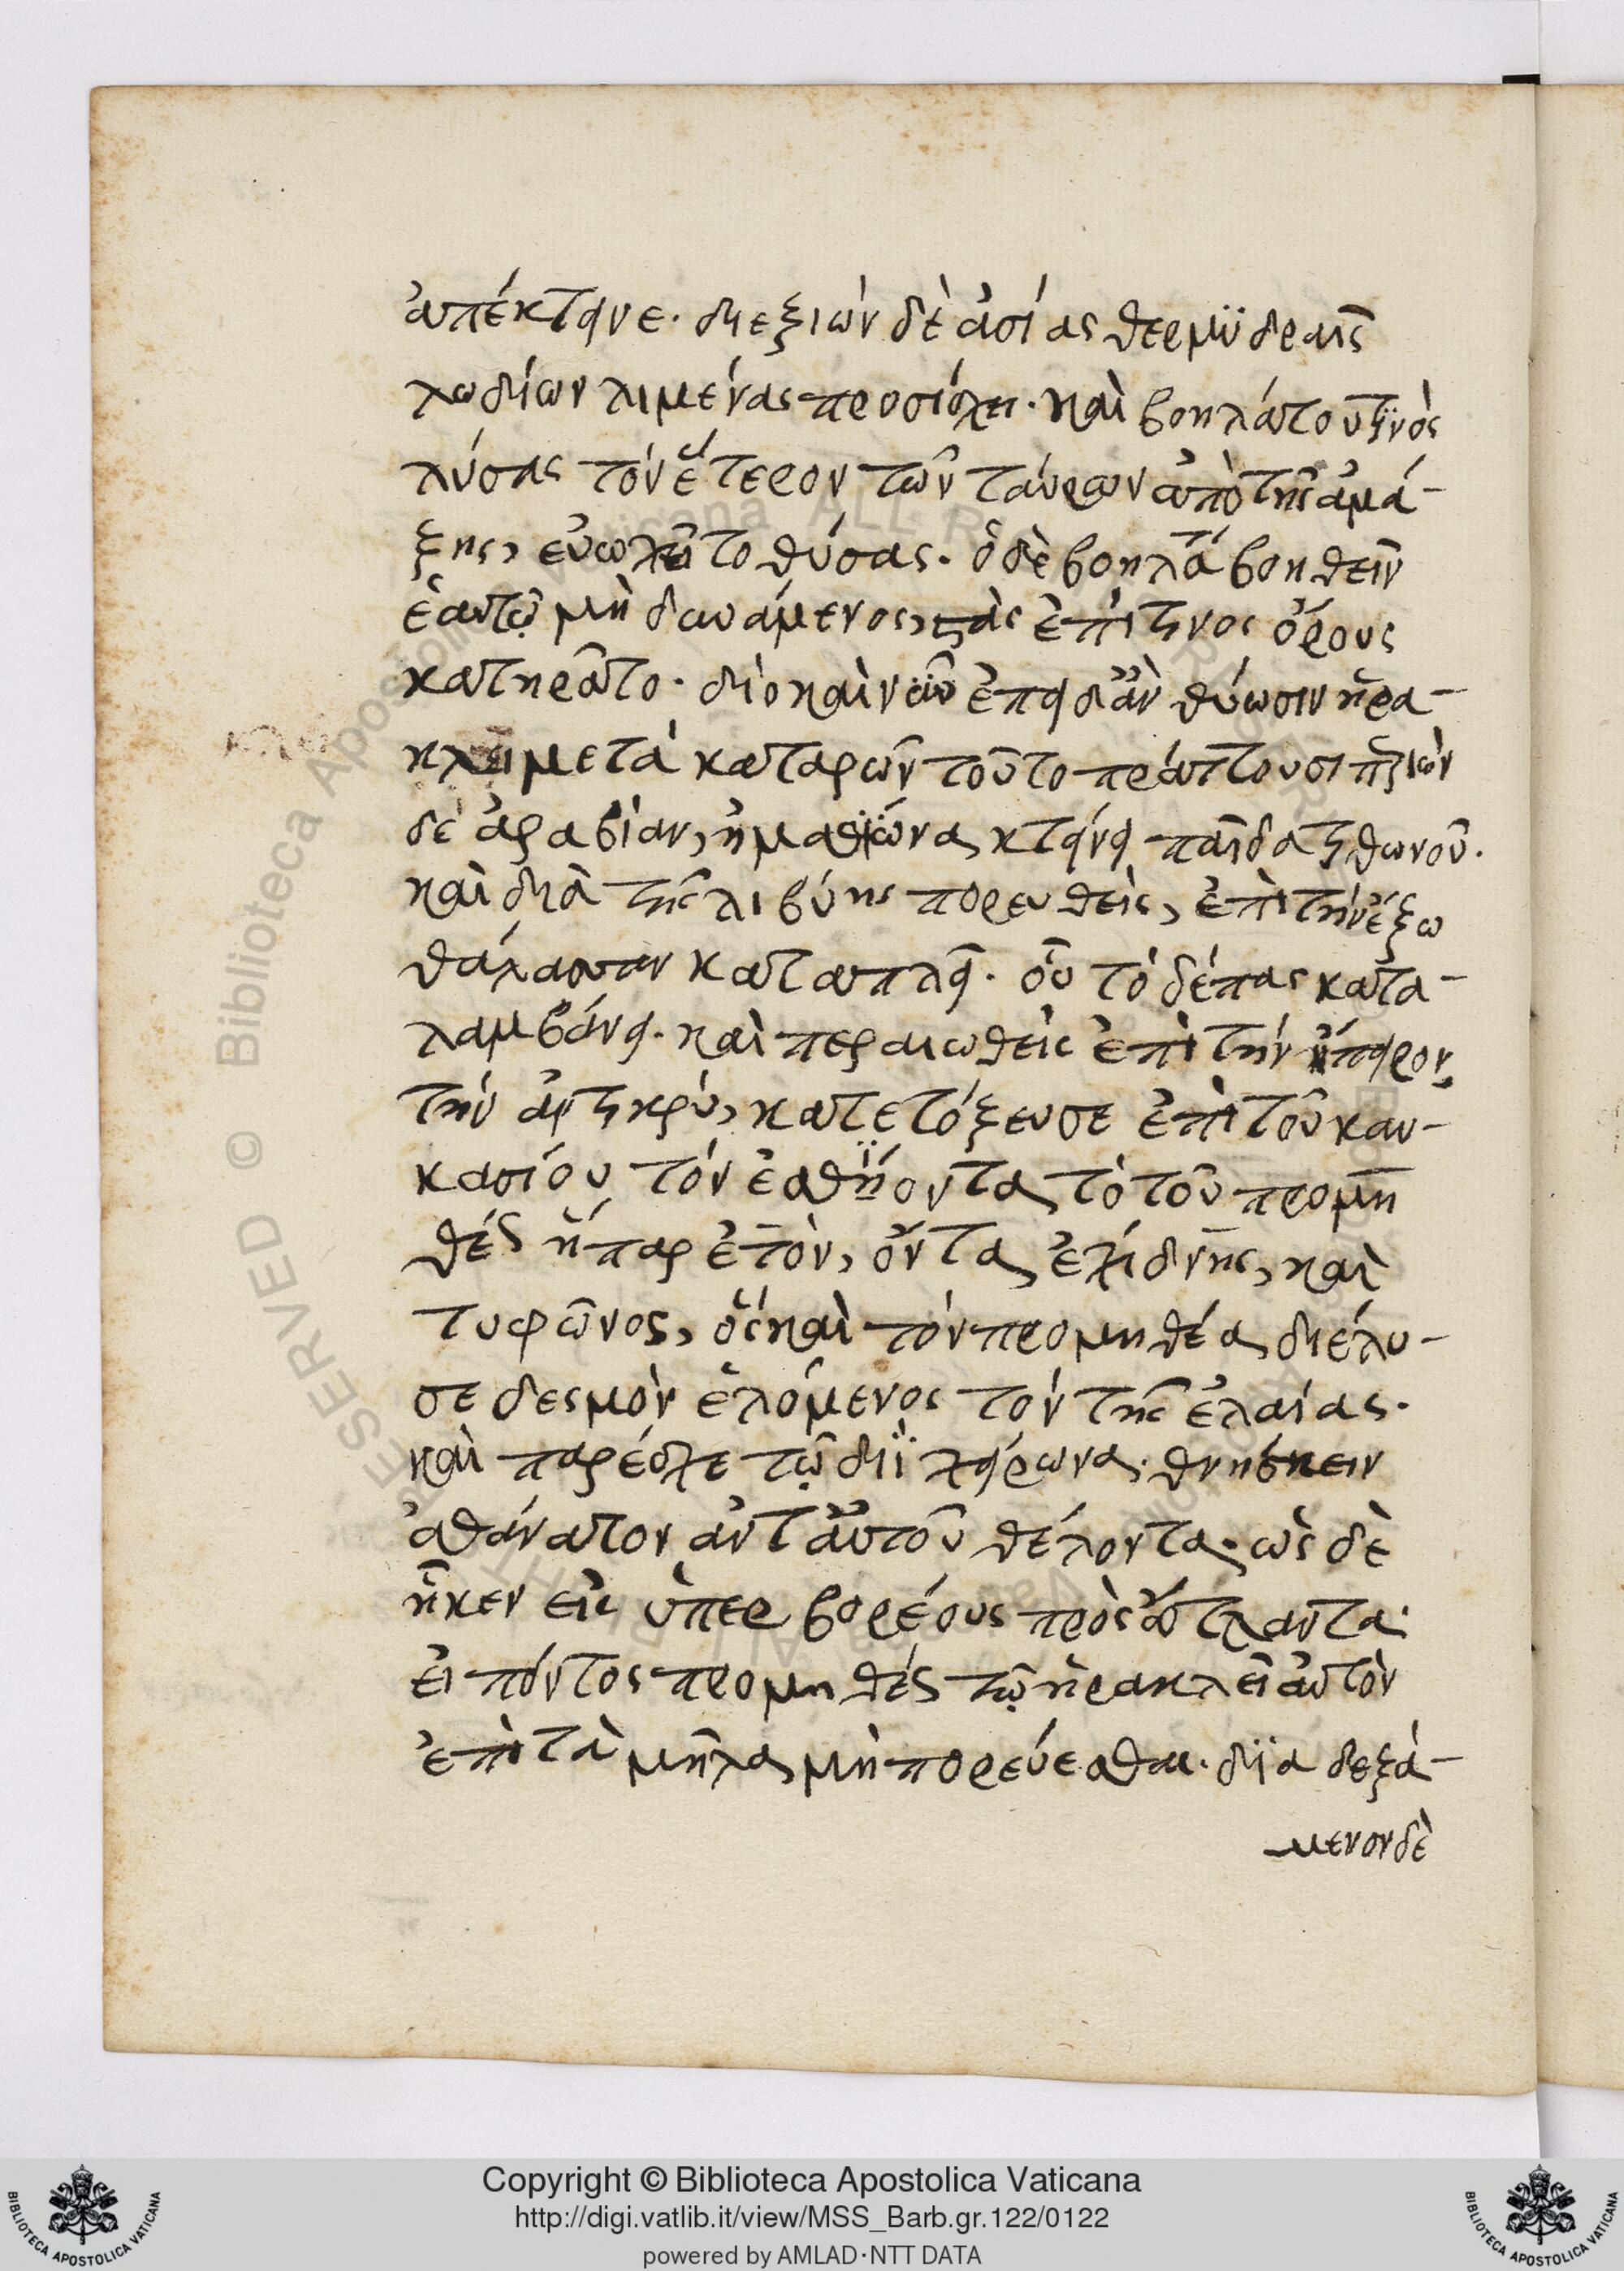 ἀπέκτεινε· διεξιὼν δὲ ἀσίας θερμυδραῖς
λωδίων λιμένας προσίσχει· καὶ βοηλάτου τινὸς
λύσας τὸν ἕτερον τῶν ταύρων ἀπὸ τῆς ἁμά-
ξης, εὐωχεῖτο θύσας. ὁ δὲ βοηλά βοηθεῖν
ἑαυτῷ μὴ δυνάμενος, στὰς ἐπί τινος ὄρους
κατηρᾶτο· διὸ καὶ νῦν ἐπειδὰν θύωσιν ἡρα-
κλεῖ μετὰ καταρῶν τοῦτο πράττουσι παριὼν
δὲ ἀραβίαν, ἠμαθίωνα κτείνει παῖδα τιθωνοῦ.
καὶ διὰ τῆς λιβύης πορευθεὶς, ἐπὶ τὴν ἔξω
θάλασσαν καταπλεῖ. οὗ τὸ δέπας κατα-
λαμβάνει. καὶ περαιωθεὶς ἐπὶ τὴν ἤπειρον
τὴν ἀντικρὺ, κατετόξευσε ἐπὶ τοῦ καυ-
κασίου τὸν ἐσθίοντα τὸ τοῦ προμη
θέως ἧπαρ ἐτὸν, ὄντα ἐχίδνης, καὶ
τυφῶνος, ὃς καὶ τὸν προμηθέα διέλυ-
σε δεσμὸν ἑλόμενος τὸν τῆς ἐλαίας.
καὶ παρέσχε τῷ διῒ χείρωνα. θνήσκειν
ἀθάνατον ἀντ' αὐτοῦ θέλοντα. ὡς δὲ
ἧκεν εἰς ὑπερβορέους πρὸς ἄτλαντα·
εἰπόντος προμηθέως τῷ ἡρακλεῖ αὐτὸν
ἐπὶ τὰ μῆλα μὴ πορεύεσθαι. διαδεξά-
μενον δὲ
Copyright © Biblioteca Apostolica Vaticana
http://digi.vatlib.it/view/MSS_Barb.gr.122/0122
powered by AMLAD·NTT DATA